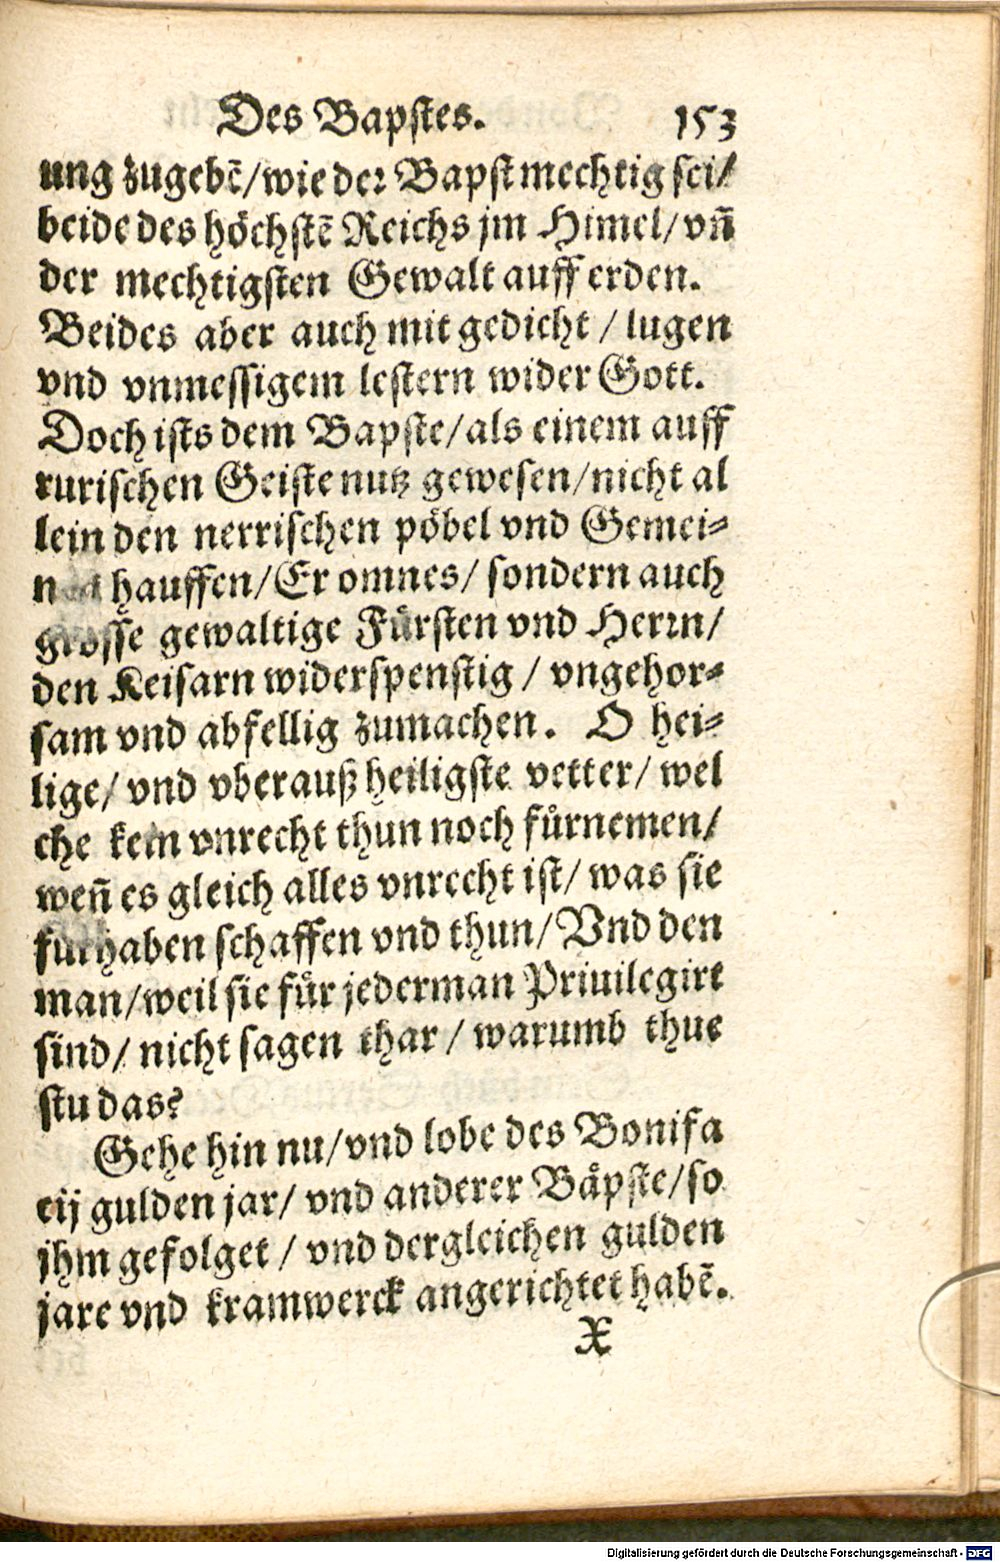 Des Bapstes. 153
ung zugebẽ/wie der Bapst mechtig sei/
beide des höchstẽ Reichs jm Himel/vñ
der mechtigsten Gewalt auff erden.
Beides aber auch mit gedicht / lugen
vnd vnmessigem lestern wider Gott.
Doch ists dem Bapste/als einem auff
rurischen Geiste nutz gewesen/nicht al
lein den nerrischen pöbel vnd Gemei-
hauffen/Er omnes/ sondern auch
grosse gewaltige Fürsten vnd Herrn/
den Keisarn widerspenstig / vngehor-
sam vnd abfellig zumachen. O hei-
lige/ vnd vberauß heiligste vetter/ wel
che kein vnrecht thun noch fürnemen/
weñ es gleich alles vnrecht ist/ was sie
fürhaben schaffen vnd thun/ Vnd den
man/weil sie für jederman Priuilegirt
sind/ nicht sagen thar / warumb thue
stu das?
Gehe hin nu/vnd lobe des Bonifa
cij gulden jar/ vnd anderer Bäpste/so
jhm gefolget / vnd dergleichen gulden
jare vnd kramwerck angerichtet habẽ.
X
Digitalisierung gefördert durch die Deutsche Forschungsgemeinschaft - DFG